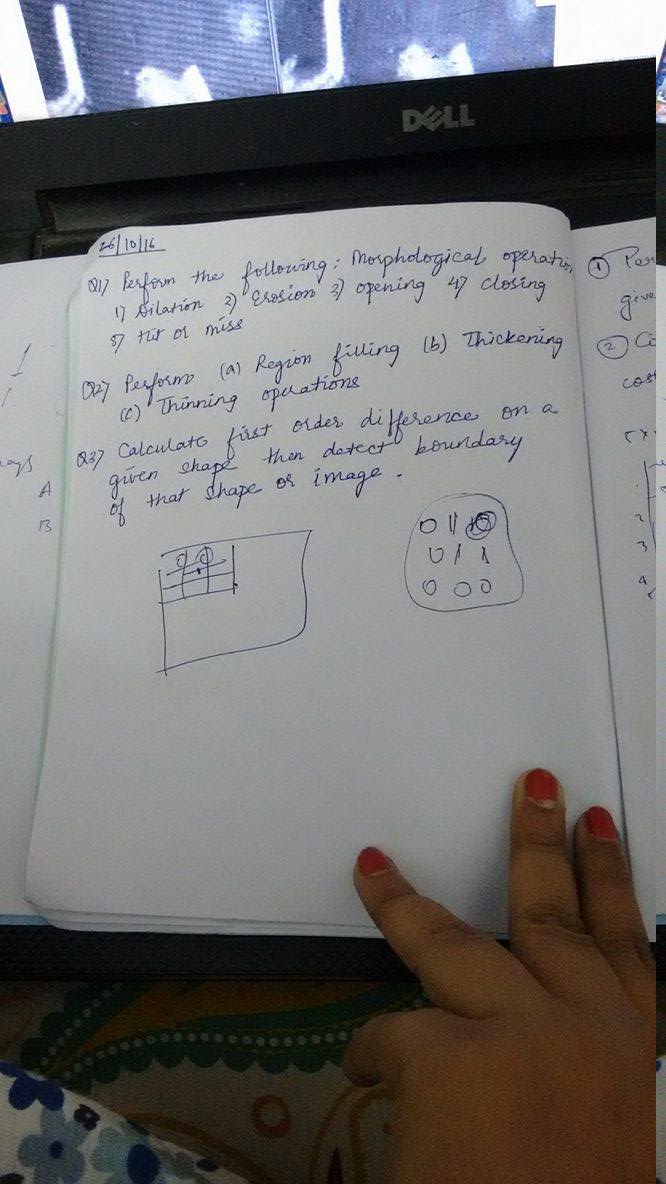 DELL
26/10/16
Q1) Perform the following: Morphological operation
1) Dilation 2) Erosion 3) opening 4) closing
5) Hit or miss
Q2) Perform (a) Region filling (b) Thickening
(c) Thinning operations
Q3) Calculate first order difference on a
given shape then detect boundary
of that shape or image.
0 1 0
0 1 1
0 0 0
A
B
1
2
1
2
3
4